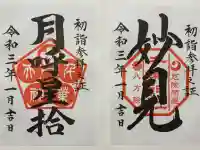 初詣参拝之証
月呼皇拾
令和三年一月吉日
初詣参拝之証
妙見
令和三年一月吉日